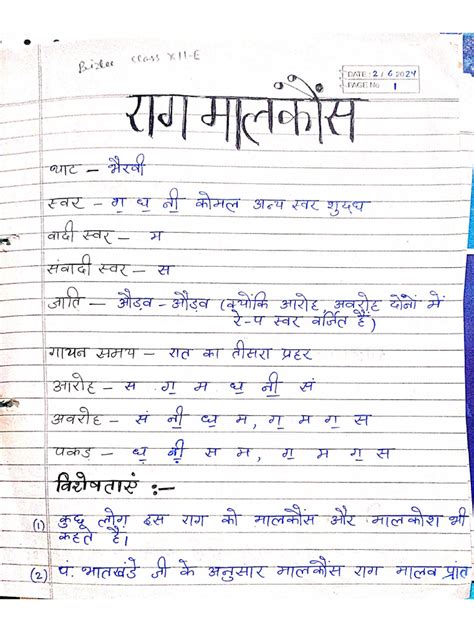 class XII-E
DATE: 2/6/2024
PAGE No 1
राग मालकौंस
थाट – भैरवी
स्वर – ग॒ ध॒ नी॒ कोमल अन्य स्वर शुद्ध
वादी स्वर – म
संवादी स्वर – स
जाति – औडव - औडव (क्योंकि आरोह अवरोह दोनों में
रे-प स्वर वर्जित हैं)
गायन समय – रात का तीसरा प्रहर
आरोह – स ग॒ म ध॒ नी॒ सं
अवरोह – सं नी॒ ध॒ म, ग॒ म ग॒ स
पकड़ – ध॒ नी॒ स म, ग॒ म ग॒ स
विशेषताएं :-
(1) कुछ लोग इस राग को मालकौंस और मालकोश भी
कहते हैं।
(2) पं. भातखंडे जी के अनुसार मालकौंस राग मालव प्रांत